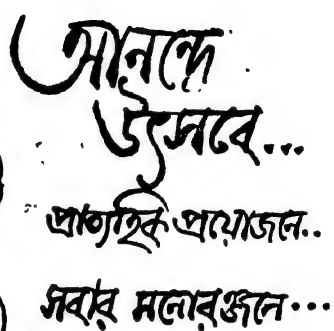 আনন্দে
উৎসবে...
প্রাত্যহিক প্রয়োজনে..
সবার মনোরঞ্জনে...